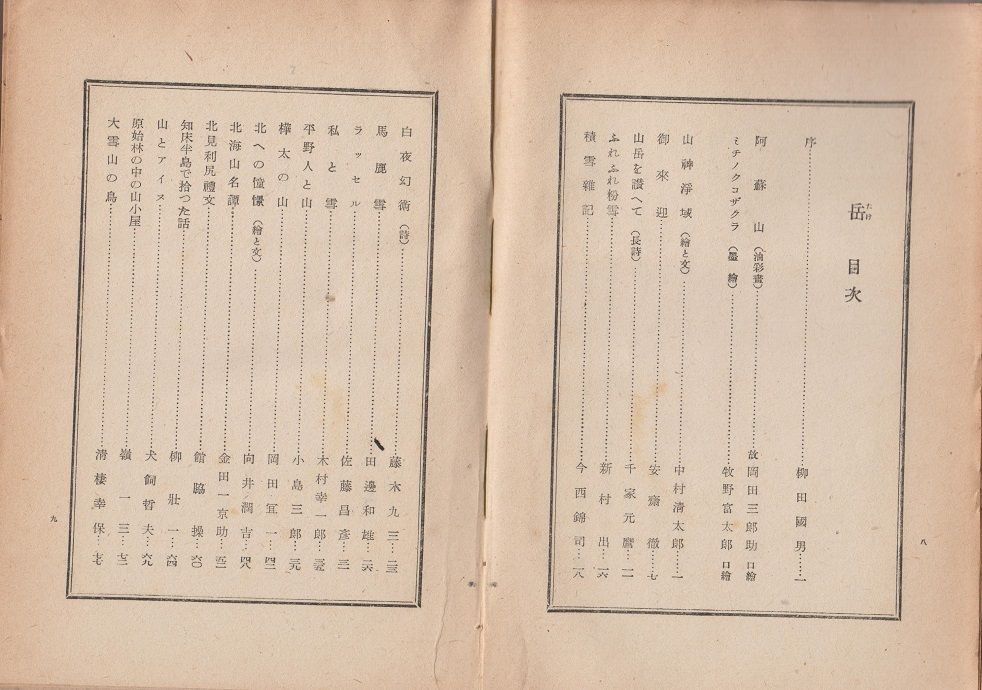 岳 目次
たけ
序……柳田國男……一
阿蘇山（油彩畫）……故岡田三郎助 口繪
ミチノクコザクラ（墨繪）……牧野富太郎 口繪
山神淨域（繪と文）……中村淸太郎…一
御來迎……安齋徹…七
山岳を讃へて（長詩）……千家元麿…一一
ふれふれ粉雪……新村出…一六
積雪雜記……今西錦司…一八
八
白夜幻術（詩）……藤木九三…二三
馬鹿雪……田邊和雄…二六
ラッセル……佐藤昌彥…三一
私と雪……木村幸一郎…三五
平野人と山……小島三郎…三九
樺太の山……岡田宜一…四二
北への憧憬（繪と文）……向井潤吉…四八
北海山名譚……金田一京助…五二
北見利尻禮文……館脇操…六〇
知床半島で拾つた話……柳壯一…六四
山とアイヌ……犬飼哲夫…六九
原始林の中の山小屋……嶺一三…七三
大雪山の鳥……淸棲幸保…七七
九